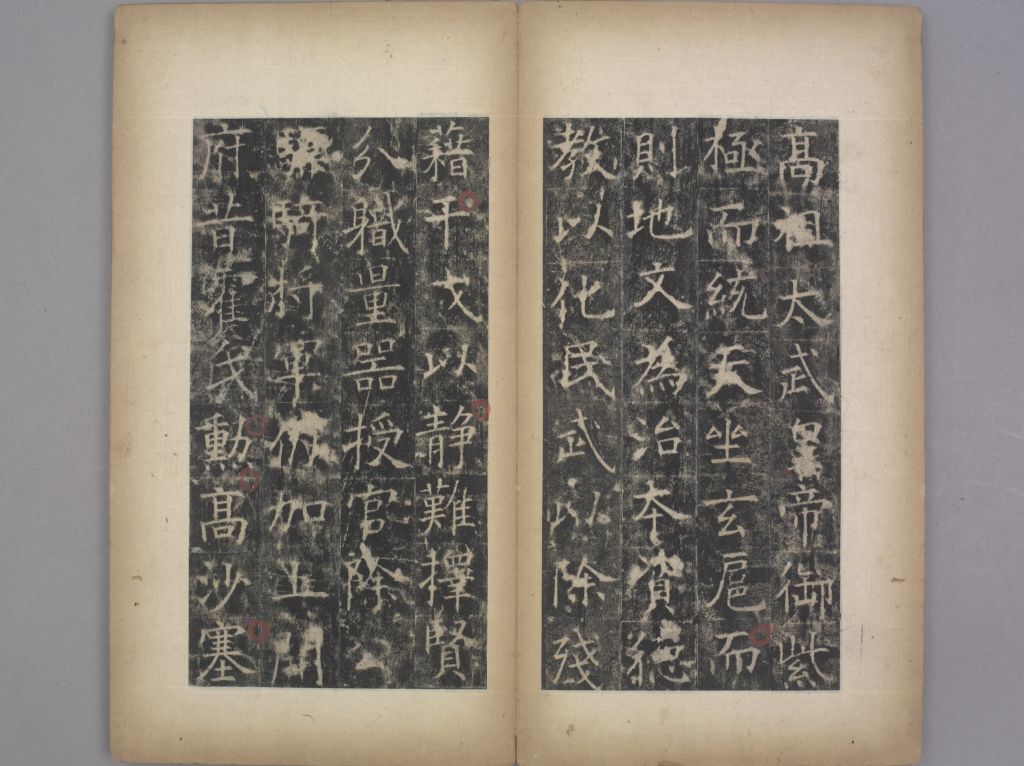 髙祖太武皇帝御紫
極而統天坐玄扈而
則地文為治本資德
教以化民武以除殘
藉干戈以静難擇賢
分職量器授官除
騎將軍仍加上開
府昔舊氏勳
髙沙塞